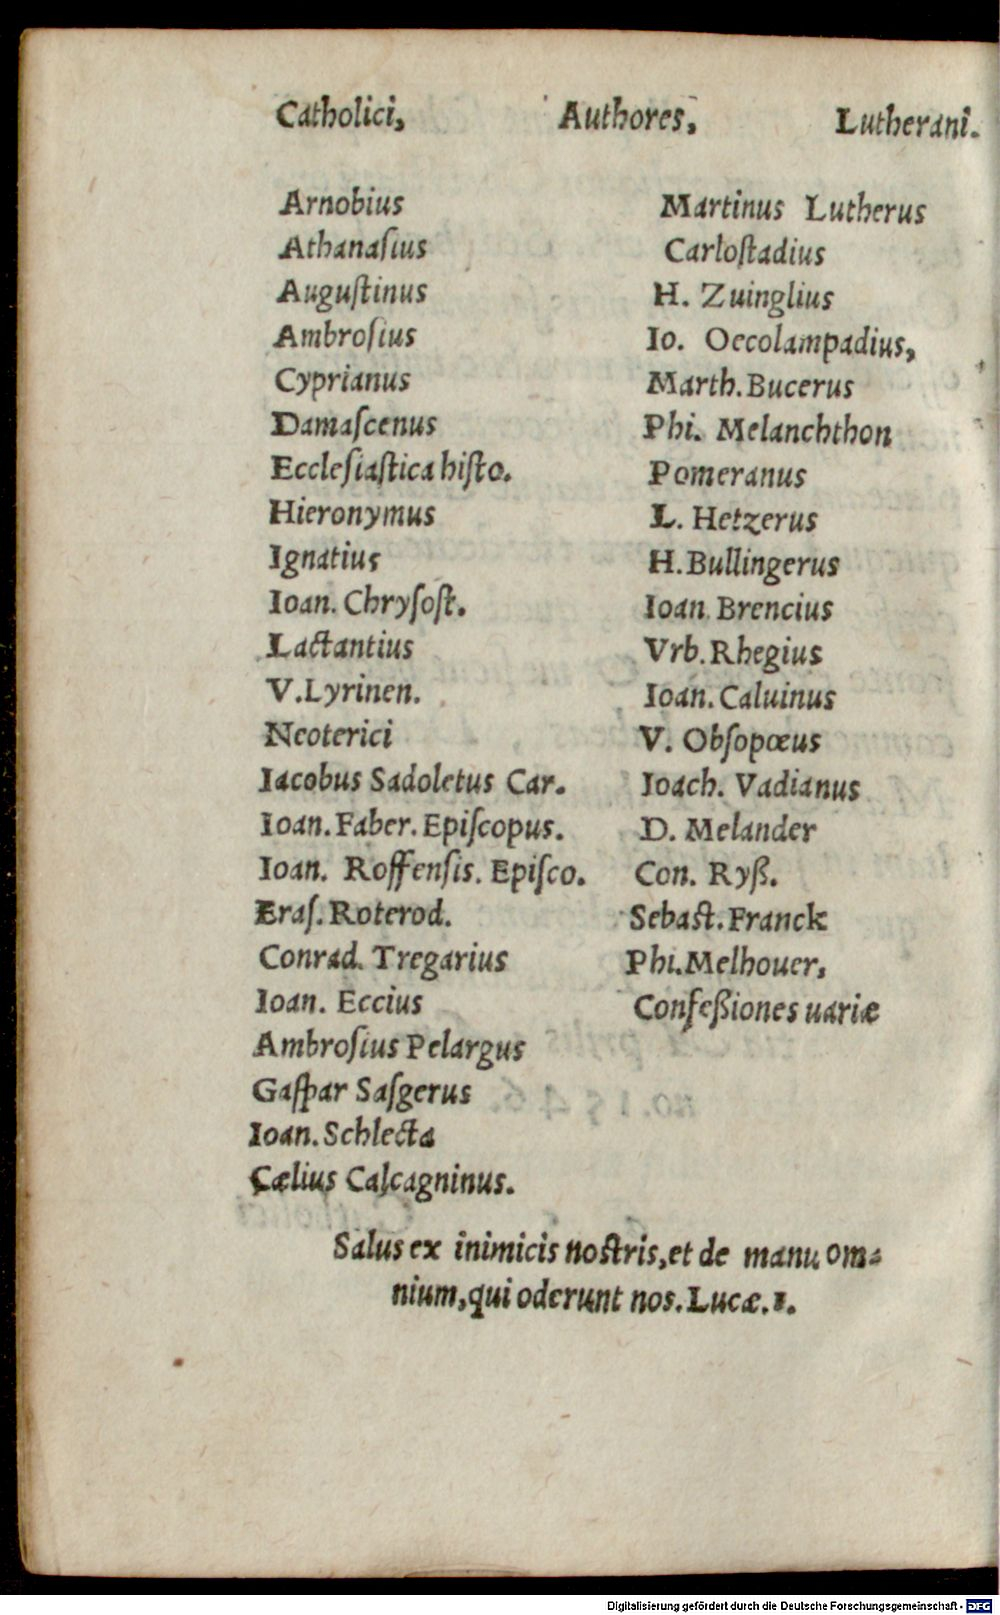 Catholici, Authores, Lutherani.
Arnobius
Athanaſius
Auguſtinus
Ambroſius
Cyprianus
Damaſcenus
Eccleſiaſtica hiſto.
Hieronymus
Ignatius
Ioan. Chryſoſt.
Lactantius
V.Lyrinen.
Neoterici
Iacobus Sadoletus Car.
Ioan.Faber.Epiſcopus.
Ioan. Roffenſis. Epiſco.
Eraſ.Roterod.
Conrad. Tregarius
Ioan. Eccius
Ambroſius Pelargus
Gaſpar Saſgerus
Ioan.Schlecta
Cælius Calcagninus.
Martinus Lutherus
Carloſtadius
H. Zuinglius
Io. Oecolampadius,
Marth.Bucerus
Phi. Melanchthon
Pomeranus
L. Hetzerus
H.Bullingerus
Ioan.Brencius
Vrb.Rhegius
Ioan.Caluinus
V. Obſopœus
Ioach. Vadianus
D. Melander
Con. Ryß.
Sebaſt.Franck
Phi.Melhouer,
Confeßiones uariæ
Salus ex inimicis noſtris,et de manu om⸗
nium,qui oderunt nos.Lucæ.1.
Digitalisierung gefördert durch die Deutsche Forschungsgemeinschaft - DFG